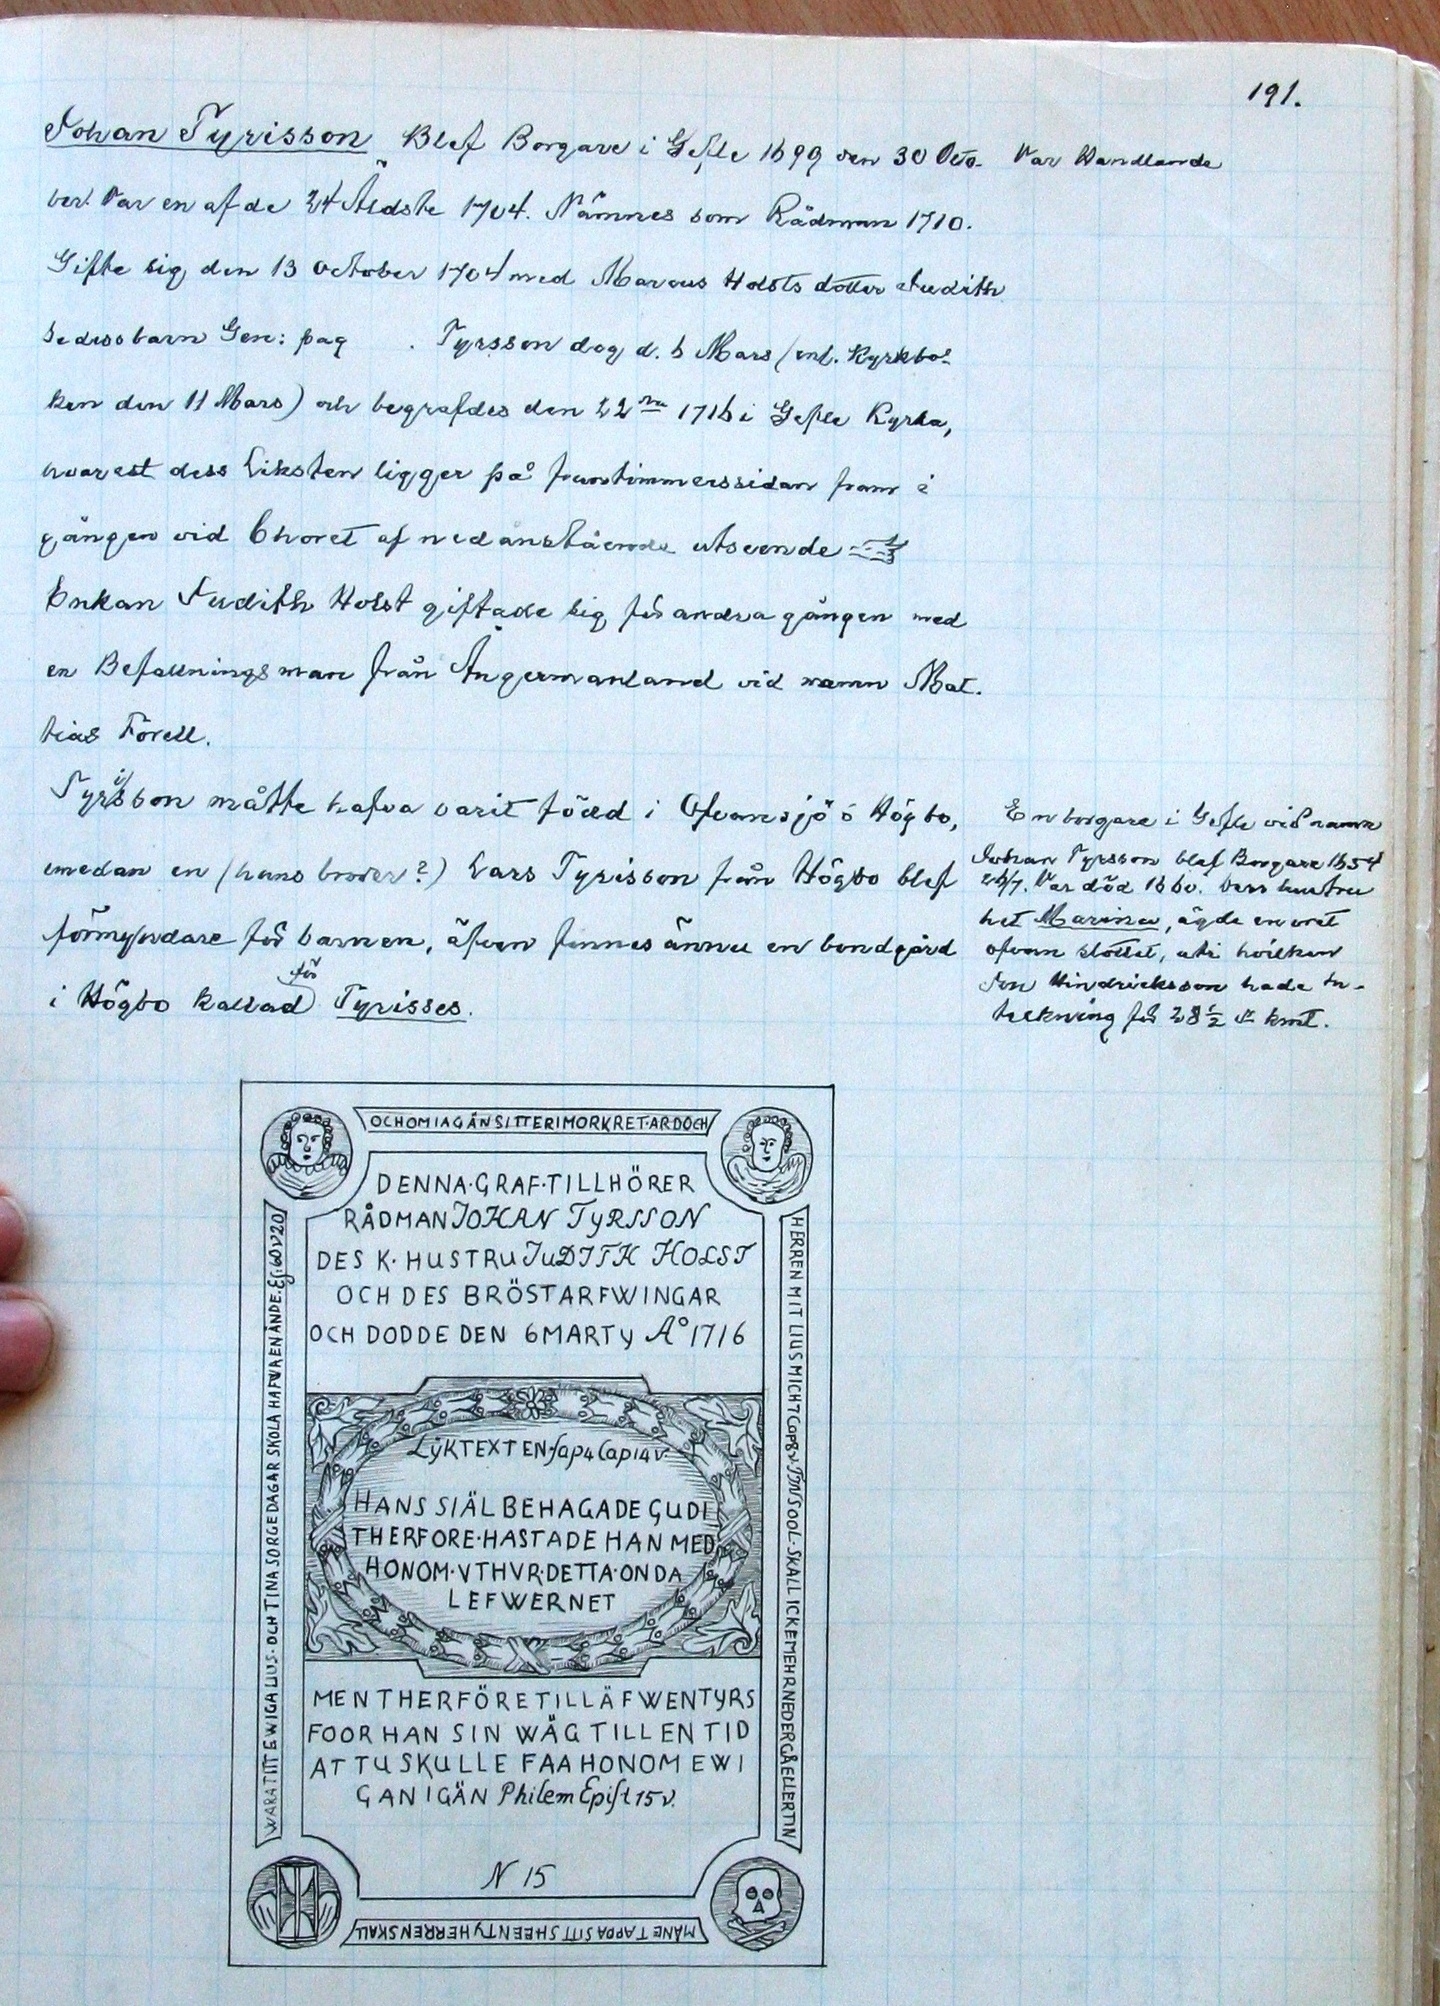 191.
Johan Tyrisson Blef Borgare i Gefle 1699 den 30 Octo- Var Handlande
ber. Var en af de 24 Äldste 1704. Nämnes som Rådman 1710.
Gifte sig den 13 October 1704 med Marcus Holsts dotter Judith
se dess barn Gen: pag . Tyrsson dog d. 6 Mars (enl. Kyrkbo-
ken den 11 Mars) och begrafdes den 22 1716 i Gefle Kyrka,
hvarest dess Liksten ligger på fruntimmerssidan fram i
gången vid Choret af nedanstående utseende
Enkan Judith Holst giftade sig för andra gången med
en Befallningsman från Ångermanland vid namn Mat-
tias Förell.
Tyrisson måtte hafva varit född i Ofvansjö o Högbo,
emedan en (hans broder?) Lars Tyrisson från Högbo blef
förmyndare för barnen, äfven finnes ännu en bondgård
i Högbo kallad för Tyrisses.
En borgare i Gefle vid namn
Johan Tyrsson blef Borgare 1654
26/7. Var död 1660. Dess hustru
het Marina, ägde en
ofvan slottet, uti hvilken
Jon Hindricksson hade In-
teckning för 28 1/2 kmt.
OCHOMIAGÄNSITTERIMORKRET·ARDOCH
DENNA·GRAF·TILLHÖRER
RÅDMAN JOHAN TYRSSON
DES K· HUSTRU JUDITH HOLST
OCH DES BRÖSTARFWINGAR
OCH DODDE DEN 6 MARTY A° 1716
LYKTEXTEN·Sap 4 Cap 14 v·
HANS SIÄL BEHAGADE GUDI
THERFORE·HASTADE HAN MED
HONOM·VTHVR·DETTA·ONDA
LEFWERNET
MEN THERFÖRE TILLÄFWENTYRS
FOOR HAN SIN WÄG TILL EN TID
AT TU SKULLE FAA HONOM EWI
GAN IGÄN Philem Epist 15 v.
N 15
HERREN MIT LIUS MICH 7 Cap 8 v. TIN SOOL·SKALL ICKE MEHR NEDERGÅ ELLER TIN
MÅNE TAPPA SITT SHEEN TY HERREN SKALL
WARA TITT EWIGA LIUS·OCH TINA SORGEDAGAR SKOLA HAFWA EN ÄNDE·Es: 60 V 20